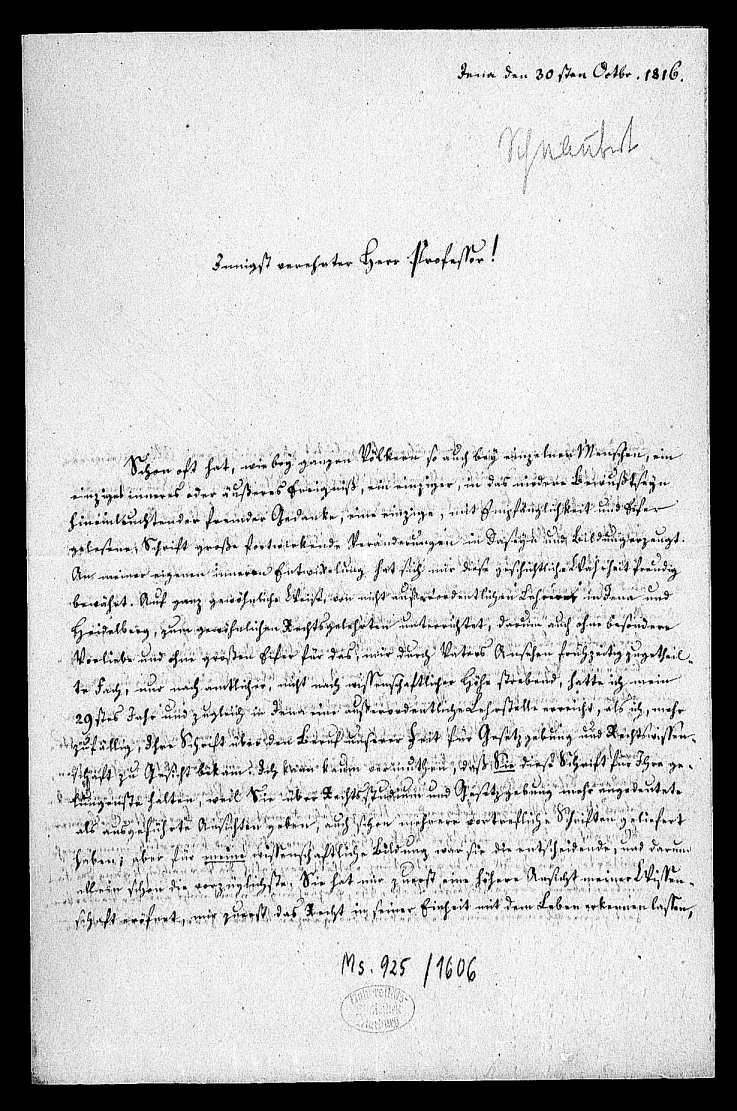 Jena den 30sten Octbr. 1816.
Schnaubert
Innigst verehrter Herr Professor!
Schon oft hat, wie bey ganzen Völkern so auch bey einzelnen Menschen, ein
einziges inneres oder äußeres Ereigniß, ein einziger, in das niedere Bewußtseyn
hineinleuchtender fremder Gedanke, eine einzige, mit Empfänglichkeit und Eifer
gelesene, Schrift große fortwirkende Veränderungen in Daseyn und Bildung erzeugt.
An meiner eigenen inneren Entwickelung hat sich mir diese geschichtliche Wahrheit freudig
bewährt. Auf ganz gewöhnliche Weise, von nicht außerordentlichen Lehrern in Jena und
Heidelberg, zum gewöhnlichen Rechtsgelehrten unterrichtet, darum auch ohne besondere
Vorliebe und ohne großen Eifer für das, mir durch Vaters Ansehen frühzeitig zugetheil-
te Fach, nur nach amtlicher, nicht nach wissenschaftlicher Höhe strebend, hatte ich mein
29stes Jahr und zugleich in Jena eine außerordentliche Lehrstelle erreicht, als ich, mehr
zufällig, Ihre Schrift über den Beruf unserer Zeit für Gesetzgebung und Rechtswissen-
schaft zu Gesicht bekam. Ich kann kaum vermuthen, daß Sie diese Schrift für Ihre ge-
lungenste halten, weil Sie über Rechtsstudium und Gesetzgebung mehr angedeutete
als ausgeführte Ansichten geben, auch schon mehrere vortreffliche Schriften geliefert
haben; aber für meine wissenschaftliche Bildung war sie die entscheidende, und darum
allein schon die vorzüglichste. Sie hat mir zuerst eine höhere Ansicht meiner Wissen-
schaft eröfnet, mir zuerst das Recht in seiner Einheit mit dem Leben erkennen lassen,
Ms. 925/1606
Universitäts-
Bibliothek
Marburg